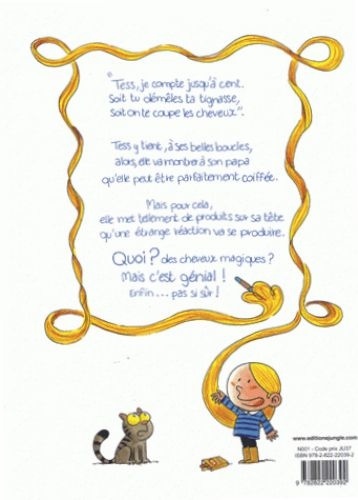 "Tess, je compte jusqu'à cent.
Soit tu démêles ta tignasse,
soit on te coupe les cheveux".
Tess y tient, à ses belles boucles,
alors, elle va montrer à son papa
qu'elle peut être parfaitement coiffée.
Mais pour cela,
elle met tellement de produits sur sa tête
qu'une étrange réaction va se produire.
Quoi ? des cheveux magiques ?
Mais c'est génial !
Enfin... pas si sûr !
www.editionsjungle.com
N001 - Code prix JU37
ISBN 978-2-822-22039-2
9 782822 220392